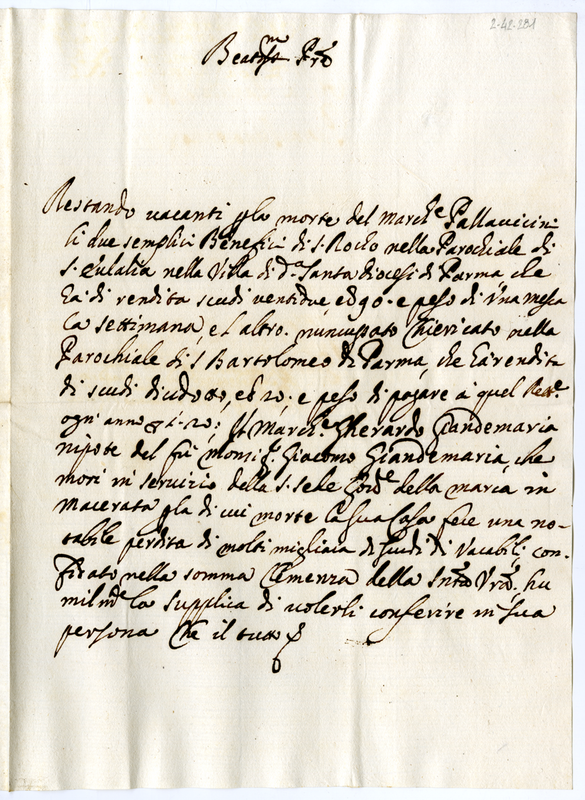 2-42-281
Beatmo Pre
Restando vacanti p la morte del Marche Pallavicini
li due semplici Benefici di S. Rocho nella Parochiale di
S. Eulalia nella Villa di da Santa diocesi di Parma che
ha di rendita scudi ventidue, e d 90. e peso di una messa
la settimana, e l'altro. nuncupato Chiericato nella
Parochiale di S Bartolomeo di Parma, che ha rendita
di scudi, e d 20. e peso di pagare à quel
ogni anno 20: Il Marche Gherardo Giandemaria
nipote del fù Monsr. Giacomo Giandemaria, che
morì in servizio della S. Sede della marca in
Macerata p la di cui morte la sua Casa fece una no-
tabile perdita di molti migliaia di scudi di Vacabili. con-
fidato nella somma Clemenza della Sntà Vra. hu
milmte la supplica di volerli conferire in sua
persona Che il tutto